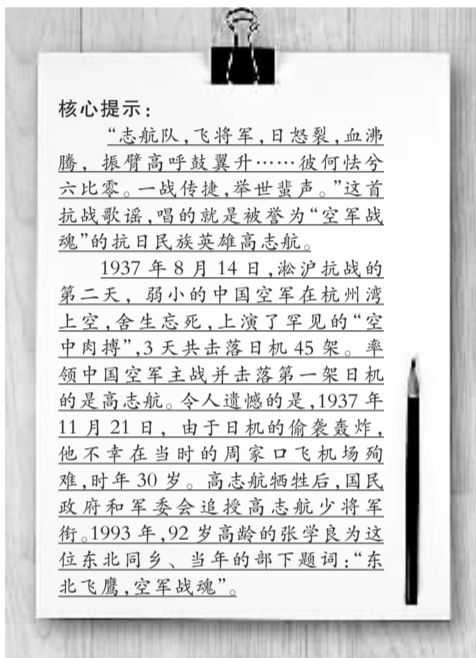 核心提示：
“志航队，飞将军，日怒裂，血沸
腾，振臂高呼鼓翼升……彼何怯兮
六比零。一战传捷，举世蜚声。”这首
抗战歌谣，唱的就是被誉为“空军战
魂”的抗日民族英雄高志航。
1937年8月14日，淞沪抗战的
第二天，弱小的中国空军在杭州湾
上空，舍生忘死，上演了罕见的“空
中肉搏”，3天共击落日机45架。率
领中国空军主战并击落第一架日机
的是高志航。令人遗憾的是，1937年
11月21日，由于日机的偷袭轰炸，
他不幸在当时的周家口飞机场殉
难，时年30岁。高志航牺牲后，国民
政府和军委会追授高志航少将军
衔。1993年，92岁高龄的张学良为这
位东北同乡、当年的部下题词：“东
北飞鹰，空军战魂”。